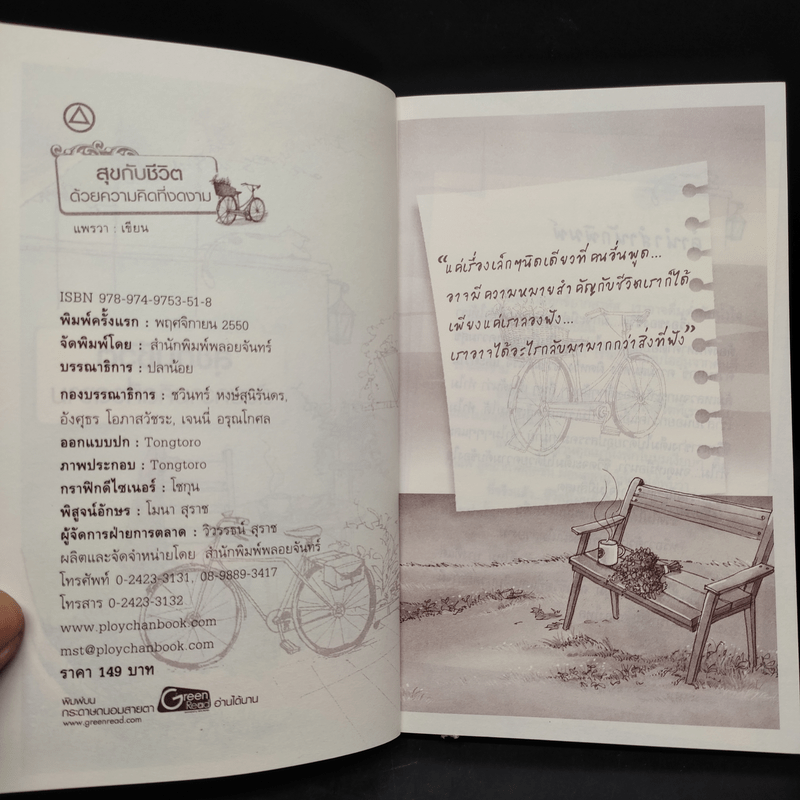 สุขกับชีวิต
ด้วยความคิดที่งดงาม
แพรวา : เขียน
ISBN 978-974-9753-51-8
พิมพ์ครั้งแรก : พฤศจิกายน 2550
จัดพิมพ์โดย : สำนักพิมพ์พลอยจันทร์
บรรณาธิการ : ปลาน้อย
กองบรรณาธิการ : ชวินทร์ หงษ์สุนิรันดร,
อังศุธร โอภาสวัชระ, เจนนี่ อรุณโกศล
ออกแบบปก : Tongtoro
ภาพประกอบ : Tongtoro
กราฟิกดีไซเนอร์ : โชกุน
พิสูจน์อักษร : โมนา สุราช
ผู้จัดการฝ่ายการตลาด : วิวรรธน์ สุราช
ผลิตและจัดจำหน่ายโดย สำนักพิมพ์พลอยจันทร์
โทรศัพท์ 0-2423-3131, 08-9889-3417
โทรสาร 0-2423-3132
www.ploychanbook.com
mst@ploychanbook.com
ราคา 149 บาท
พิมพ์บน
กระดาษถนอมสายตา Green Read อ่านได้นาน
www.greenread.com
“แค่เรื่องเล็กๆนิดเดียวที่คนอื่นพูด...
อาจมีความหมายสำคัญกับชีวิตเราก็ได้
เพียงแค่เราลองฟัง...
เราอาจได้อะไรกลับมามากกว่าสิ่งที่ฟัง”